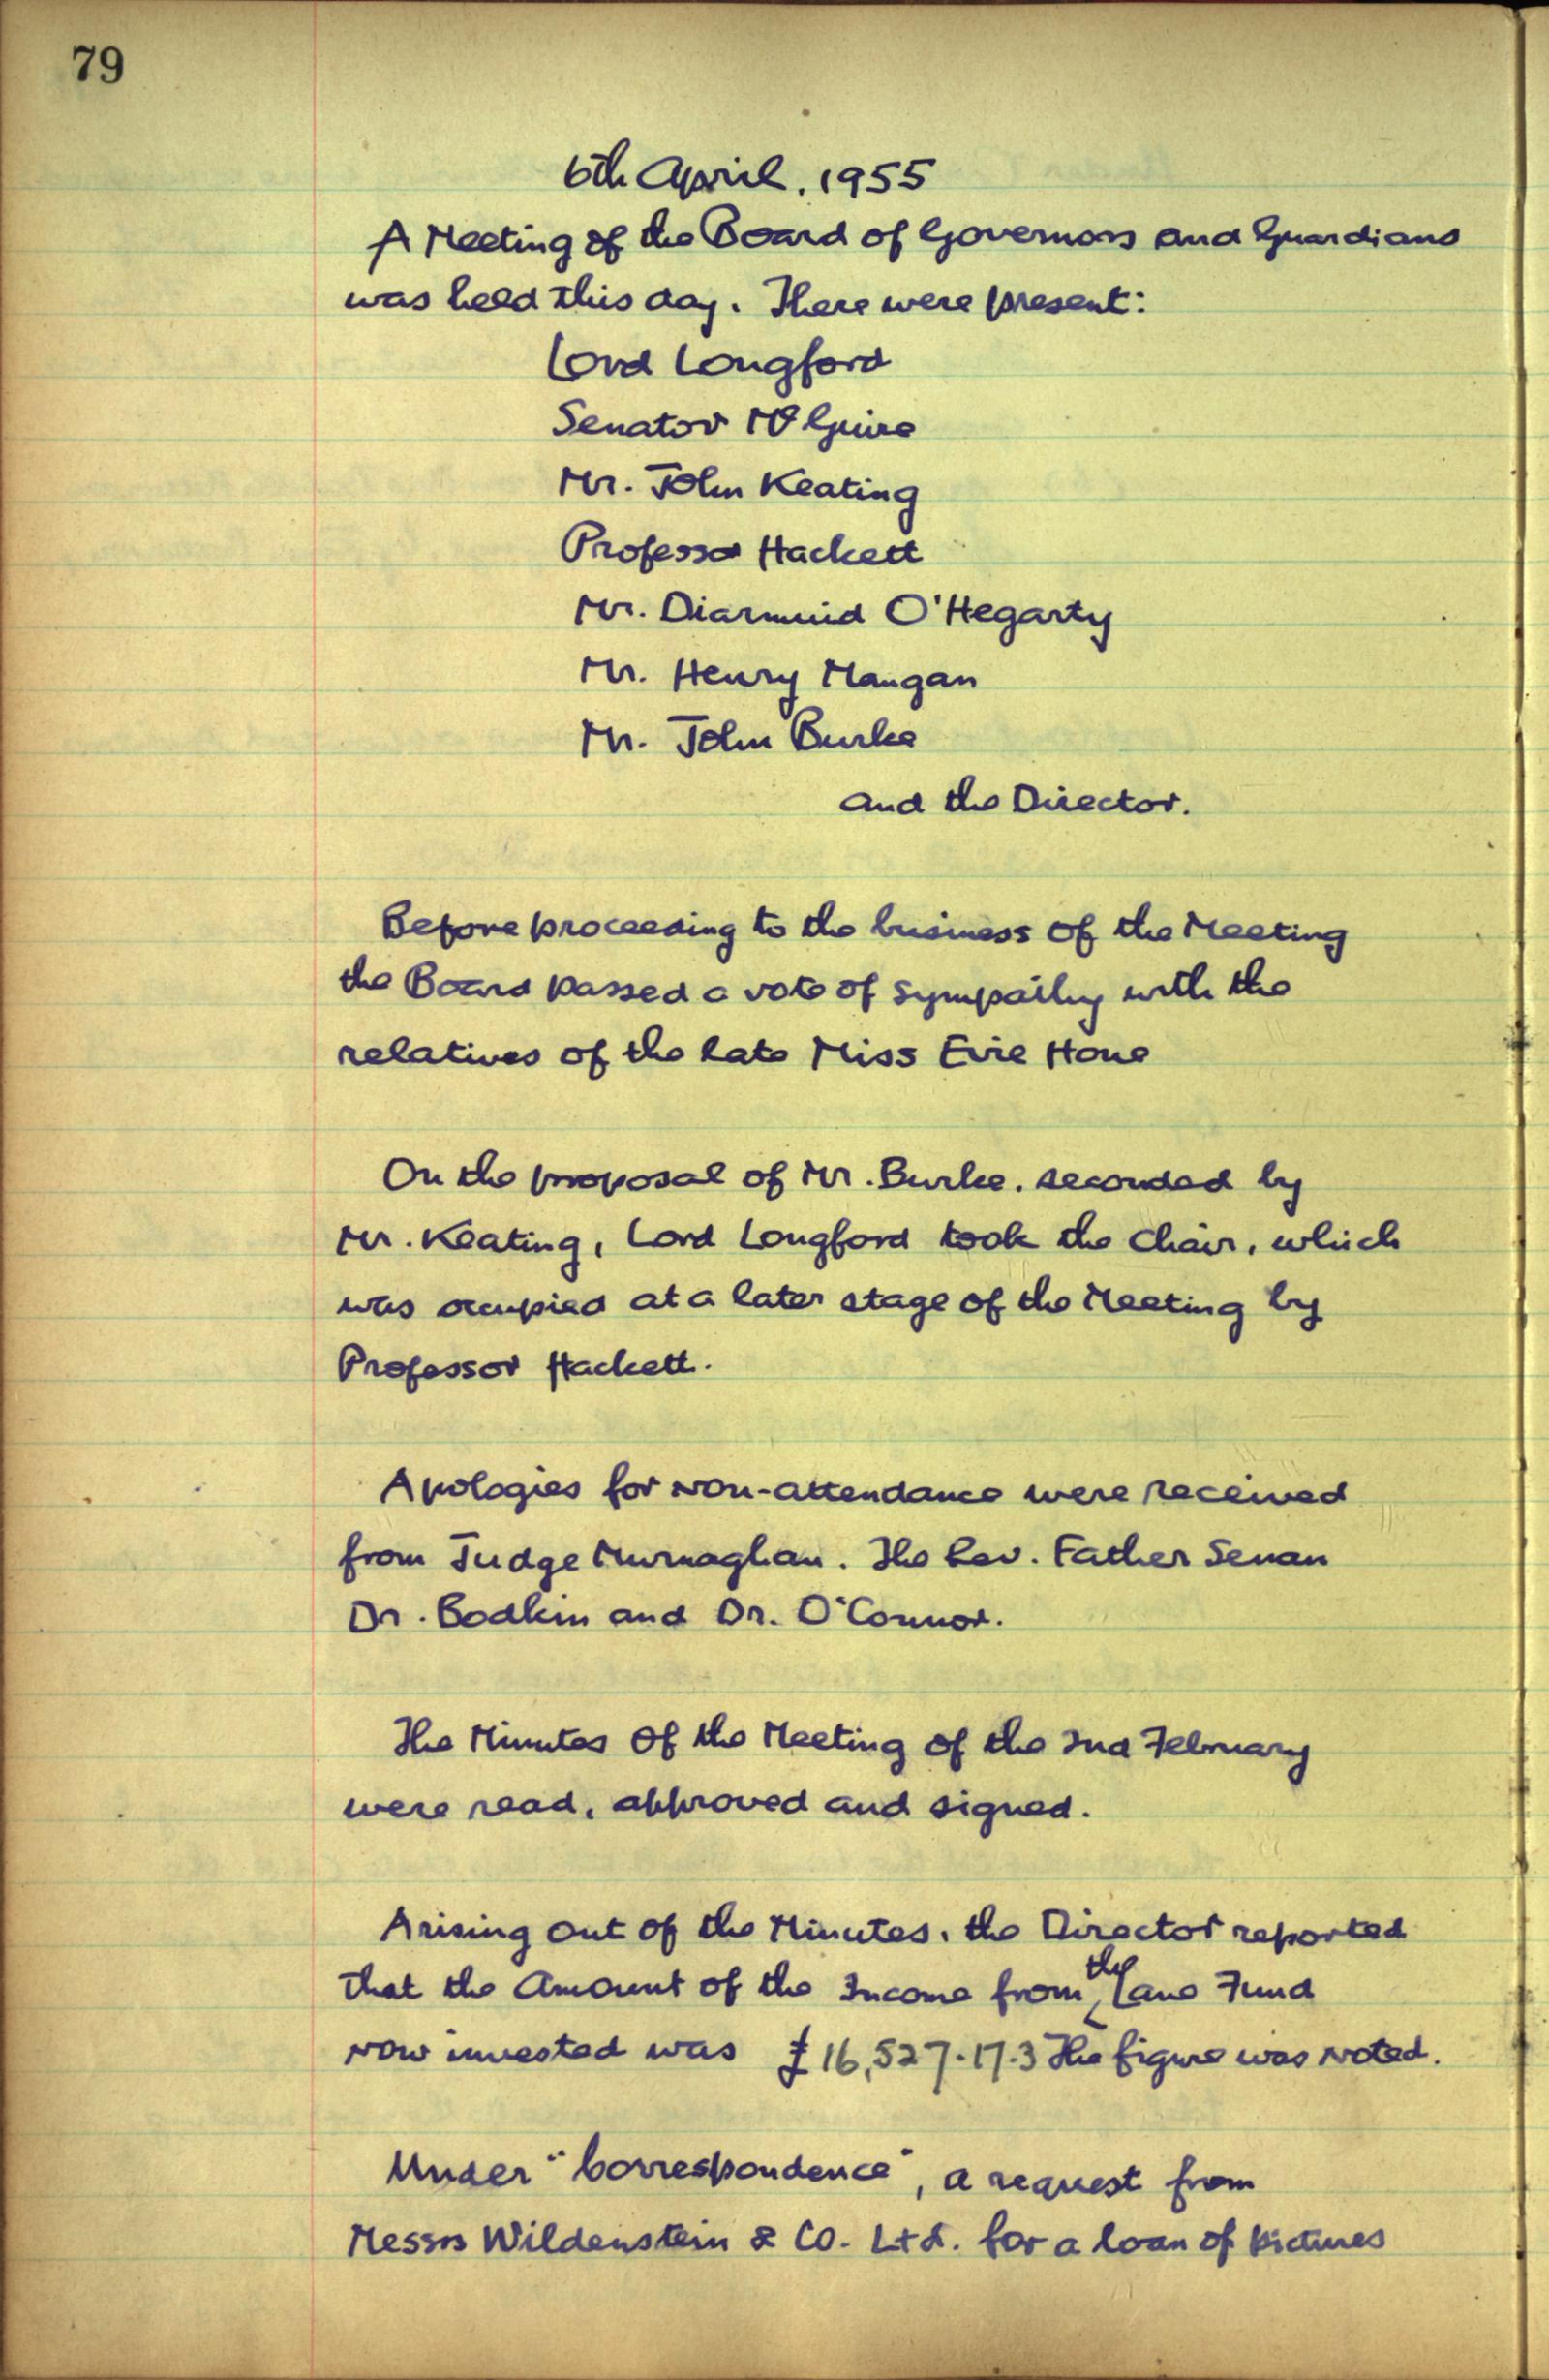 79
6th April, 1955
A Meeting of the Board of Governors and Guardians
was held this day. There were present:
Lord Longford
Senator McGuire
Mr. John Keating
Professor Hackett
Mr. Diarmuid O'Hegarty
Mr. Henry Mangan
Mr. John Burke
and the Director.
Before proceeding to the business of the Meeting
the Board passed a vote of sympathy with the
relatives of the late Miss Evie Hone
On the proposal of Mr. Burke, seconded by
Mr. Keating, Lord Longford took the Chair, which
was occupied at a later stage of the Meeting by
Professor Hackett.
Apologies for non-attendance were received
from Judge Murnaghan. The Rev. Father Senan
Dr. Bodkin and Dr. O'Connor.
The Minutes of the Meeting of the 2nd February
were read, approved and signed.
Arising out of the Minutes, the Director reported
that the Amount of the Income from the Lane Fund
now invested was £16,527.17.3 The figure was noted.
Under "Correspondence", a request from
Messrs Wildenstein & Co. Ltd. for a loan of pictures